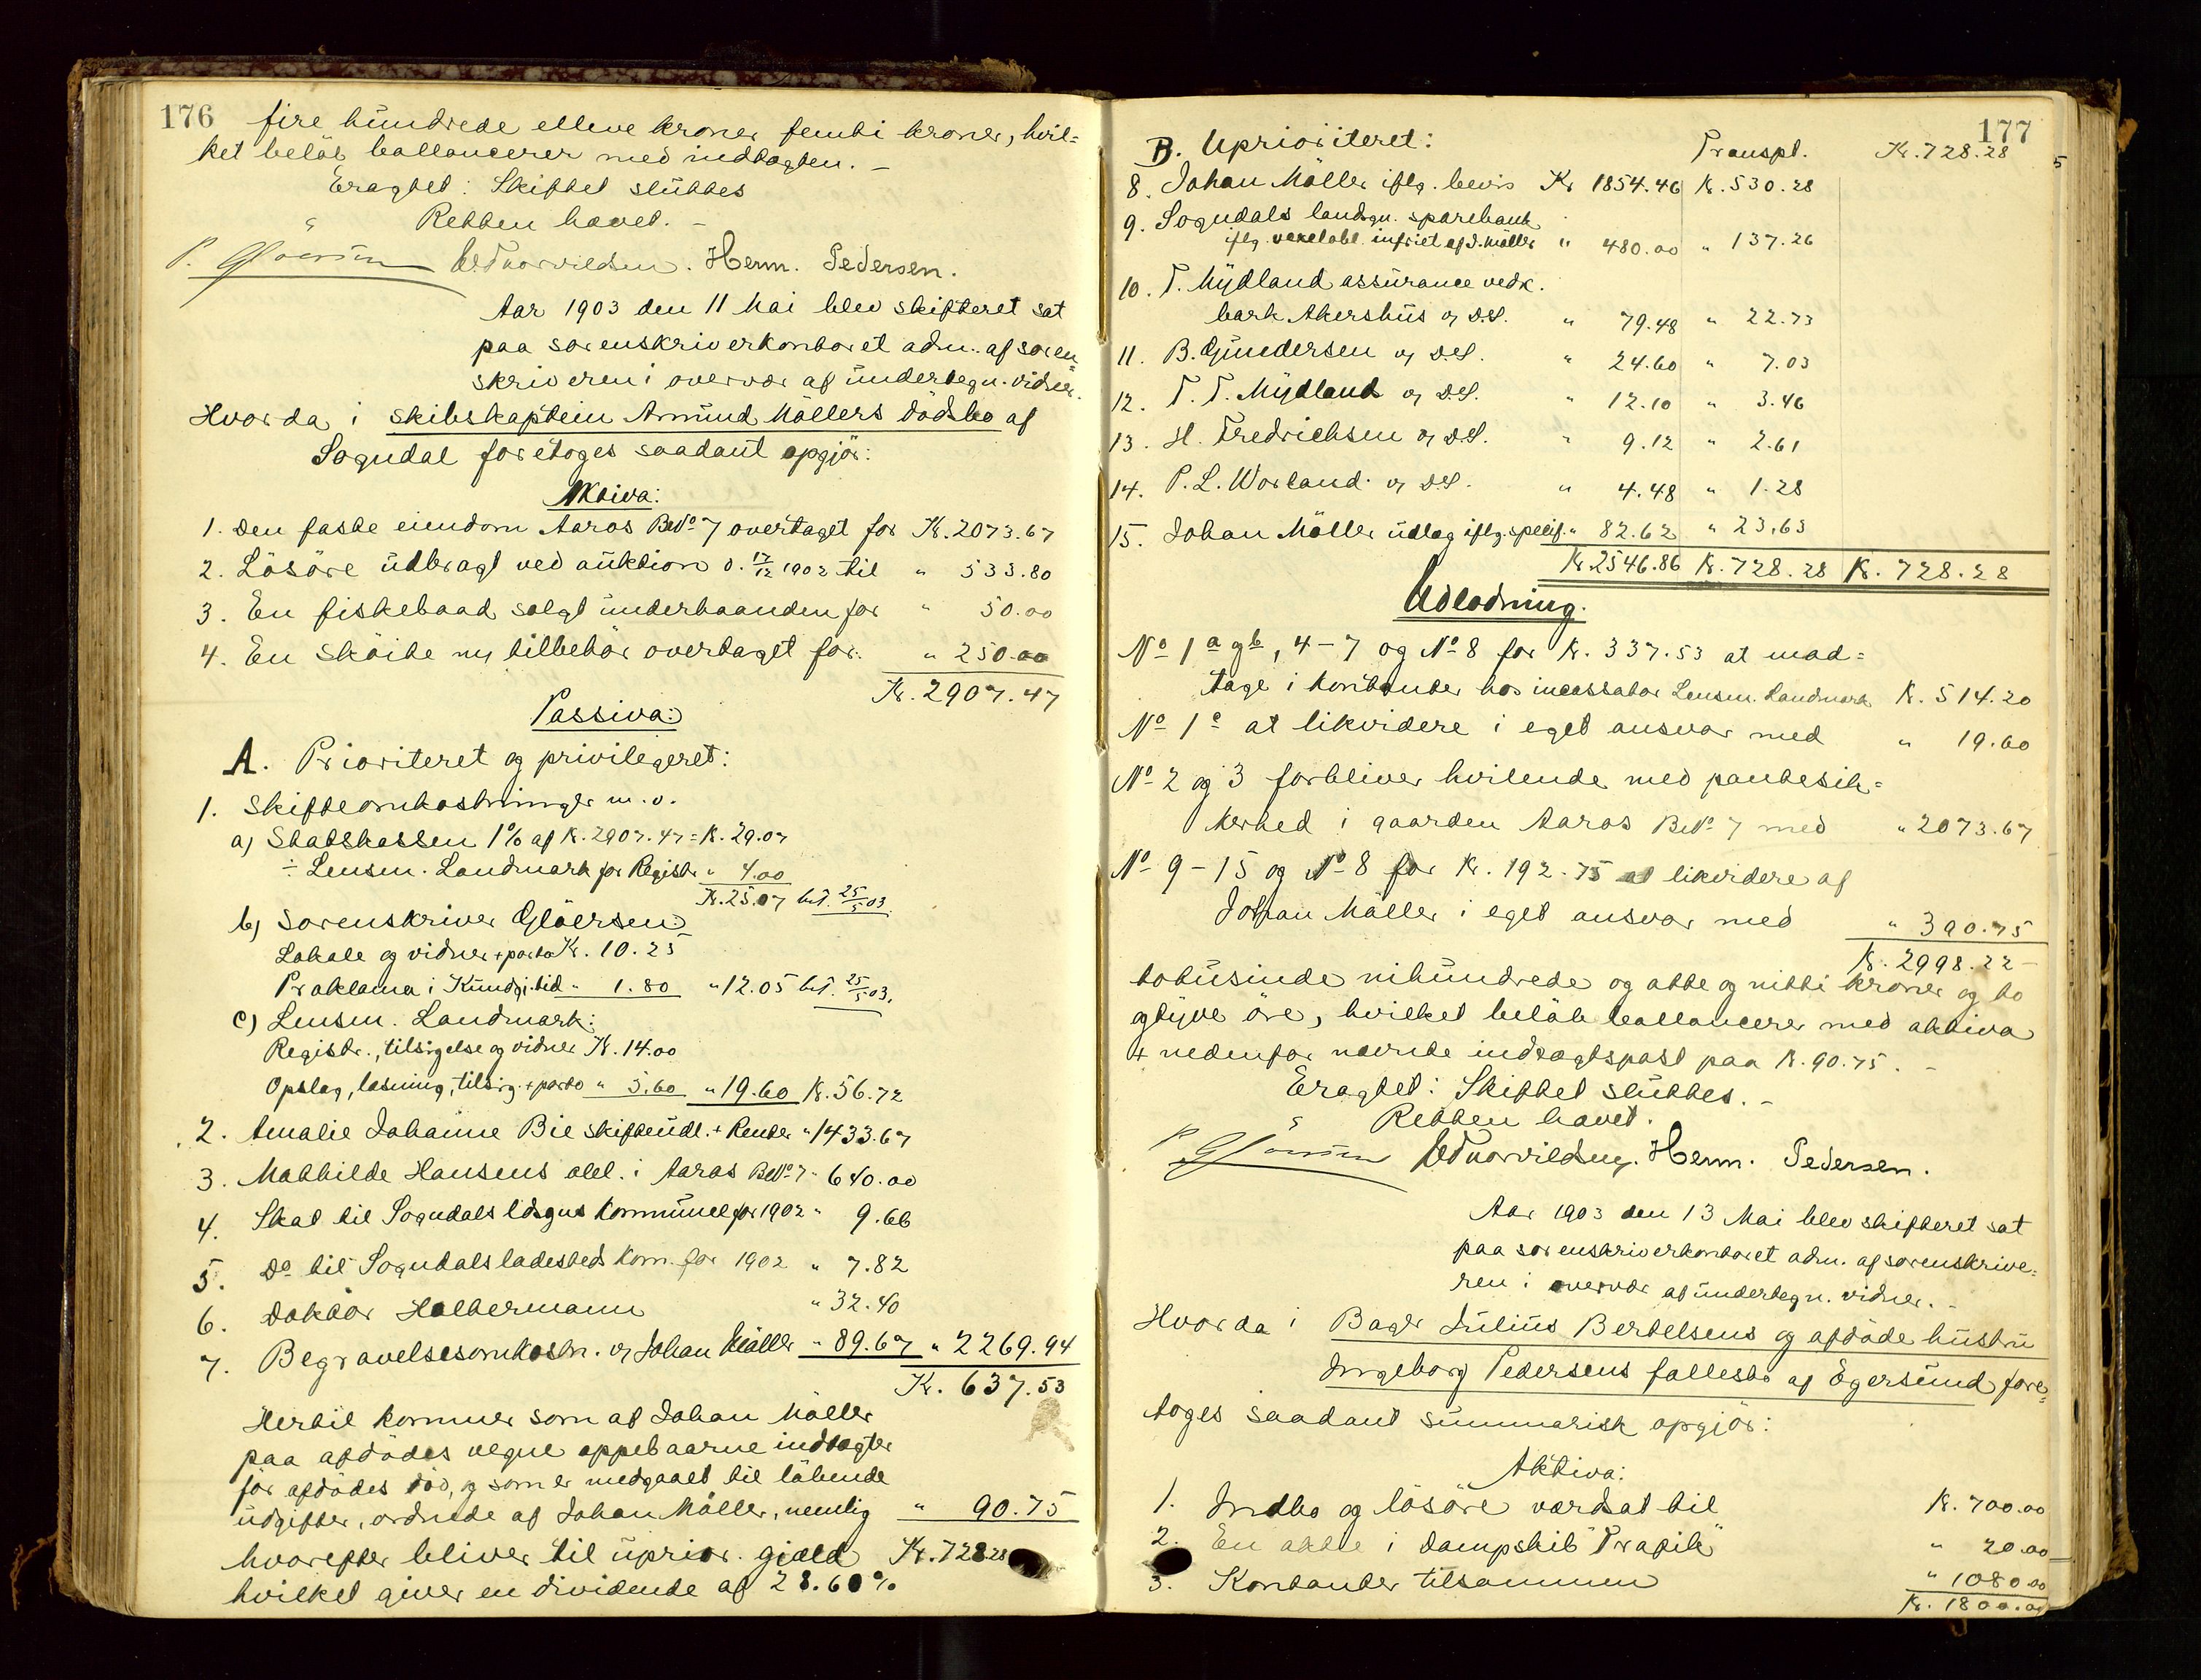 176
fire hundrede elleve kroner femti kroner, hvil=
ket beløb ballancerer med indtægten. –
Eragtet: Skiftet sluttes
" Retten hævet. –
Herm. Pedersen.
Aar 1903 den 11 Mai blev skifteret sat
paa sorenskriverkontoret adm. af soren=
skriveren i overvær af undertegn. vidner.
Hvorda i skibskaptein Amund Möllers dödsbo af
Sogndal foretoges saadant opgjör:
Aktiva:
1. Den faste eiendom Aaros BNo 7 overtaget for Kr. 2073.67
2. Lösöre udbragt ved auktion d. 17/12 1902 til " 533.80
3. En fiskebaad solgt underhaanden for " 50.00
4. En sköite m/ tilbehör overtaget for " 250.00
Kr. 2907.47
Passiva:
A. Prioriteret og privilegeret:
1. Skifteomkostninger m.v.
a) Statskassen 1% af Kr. 2907.47 = Kr. 29.07
÷ Lensm. Landmark for Registr. " 4.00
Kr. 25.07 bet. 25/5 03.
b) Sorenskriver Gløersen:
Lokale og vidner + porto Kr. 10.25
Proklama i Kundgj. tid. " 1.80 " 12.05 bet. 25/5 03.
c) Lensm. Landmark:
Registr., tilsigelse og vidner Kr. 14.00
Opslag, læsning, tilsig. + porto " 5.60 " 19.60 Kr. 56.72
2. Amalie Johanne Bie skifteudl. + Renter " 1433.67
3. Mathilde Hansens obl. i Aaros BNo 7 " 640.00
4. Skat til Sogndals ldsgns kommune for 1902 " 9.66
5. Do til Sogndals ladesteds kom. for 1902 " 7.82
6. Doktor Holbermann " 32.40
7. Begravelsesomkostn. v/ Johan Möller " 89.67 " 2269.94
Kr. 637.53
Hertil kommer som af Johan Möller
paa afdödes vegne oppebaarne indtægter
för afdödes död, og som er medgaaet til löbende
udgifter, ordnede af Johan Möller, nemlig " 90.75
hvorefter bliver til uprior. gjæld Kr. 728.28
hvilket giver en dividende af 28.60%
177
B. Uprioriteret: Transpt. Kr. 728.28
8. Johan Möller iflg. bevis Kr 1854.46 Kr. 530.28
9. Sogndals landsgn. sparebank
iflg. vexelobl. infriet af J. Möller " 480.00 " 137.26
10. T. Mydland assurance vedk.
bark Akershus og D.S. " 79.48 " 22.73
11. B. Gundersen og D.S. " 24.60 " 7.03
12. T. T. Mydland og D.S. " 12.10 " 3.46
13. H. Fredrichsen og D.S. " 9.12 " 2.61
14. P. L. Worland og D.S. " 4.48 " 1.28
15. Johan Möller udlæg iflg. specif. " 82.62 " 23.63
Kr. 2546.86 Kr. 728.28 Kr. 728.28
Udlodning.
No 1 a og b, 4–7 og No 8 for Kr. 337.53 at mod=
tage i kontanter hos incassator Lensm. Landmark Kr. 514.20
No 1 c at likvidere i eget ansvar med " 19.60
No 2 og 3 forbliver hvilende med pantesik=
kerhed i gaarden Aaros BNo 7 med " 2073.67
No 9–15 og No 8 for Kr. 192.75 at likvidere af
Johan Möller i eget ansvar med " 390.75
Kr. 2998.22 –
totusinde nihundrede og otte og nitti kroner og to
og tyve öre, hvilket beløb ballancerer med aktiva
+ nedenfor nævnte indtægtspost paa Kr. 90.75. –
Eragtet: Skiftet sluttes. –
" Retten hævet.
Herm. Pedersen.
Aar 1903 den 13 Mai blev skifteret sat
paa sorenskriverkontoret adm. af sorenskrive=
ren i overvær af undertegn. vidner. –
Hvorda i Bager Julius Bertelsens og afdöde hustru
Ingeborg Pedersens fællesbo af Egersund fore=
toges saadant summarisk opgjör:
Aktiva:
1. Indbo og lösöre værdsat til Kr. 700.00
2. En aktie i dampskib " " 20.00
3. Kontanter tilsammen " 1080.00
Kr. 1800.00